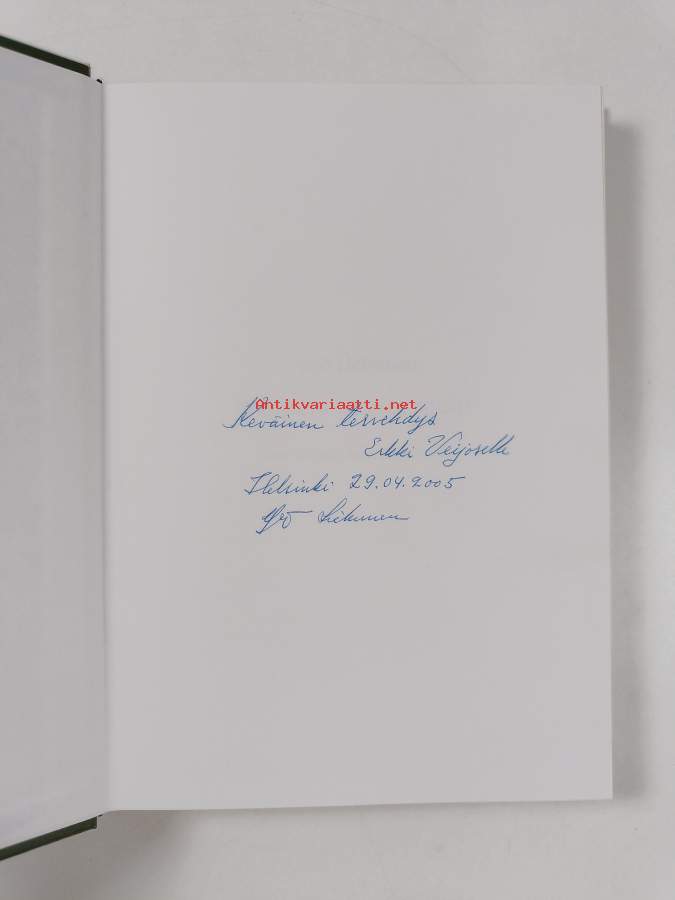 Antikvariaatti.net
Keväinen tervehdys
Erkki Veijoselle
Helsinki 29.04.2005